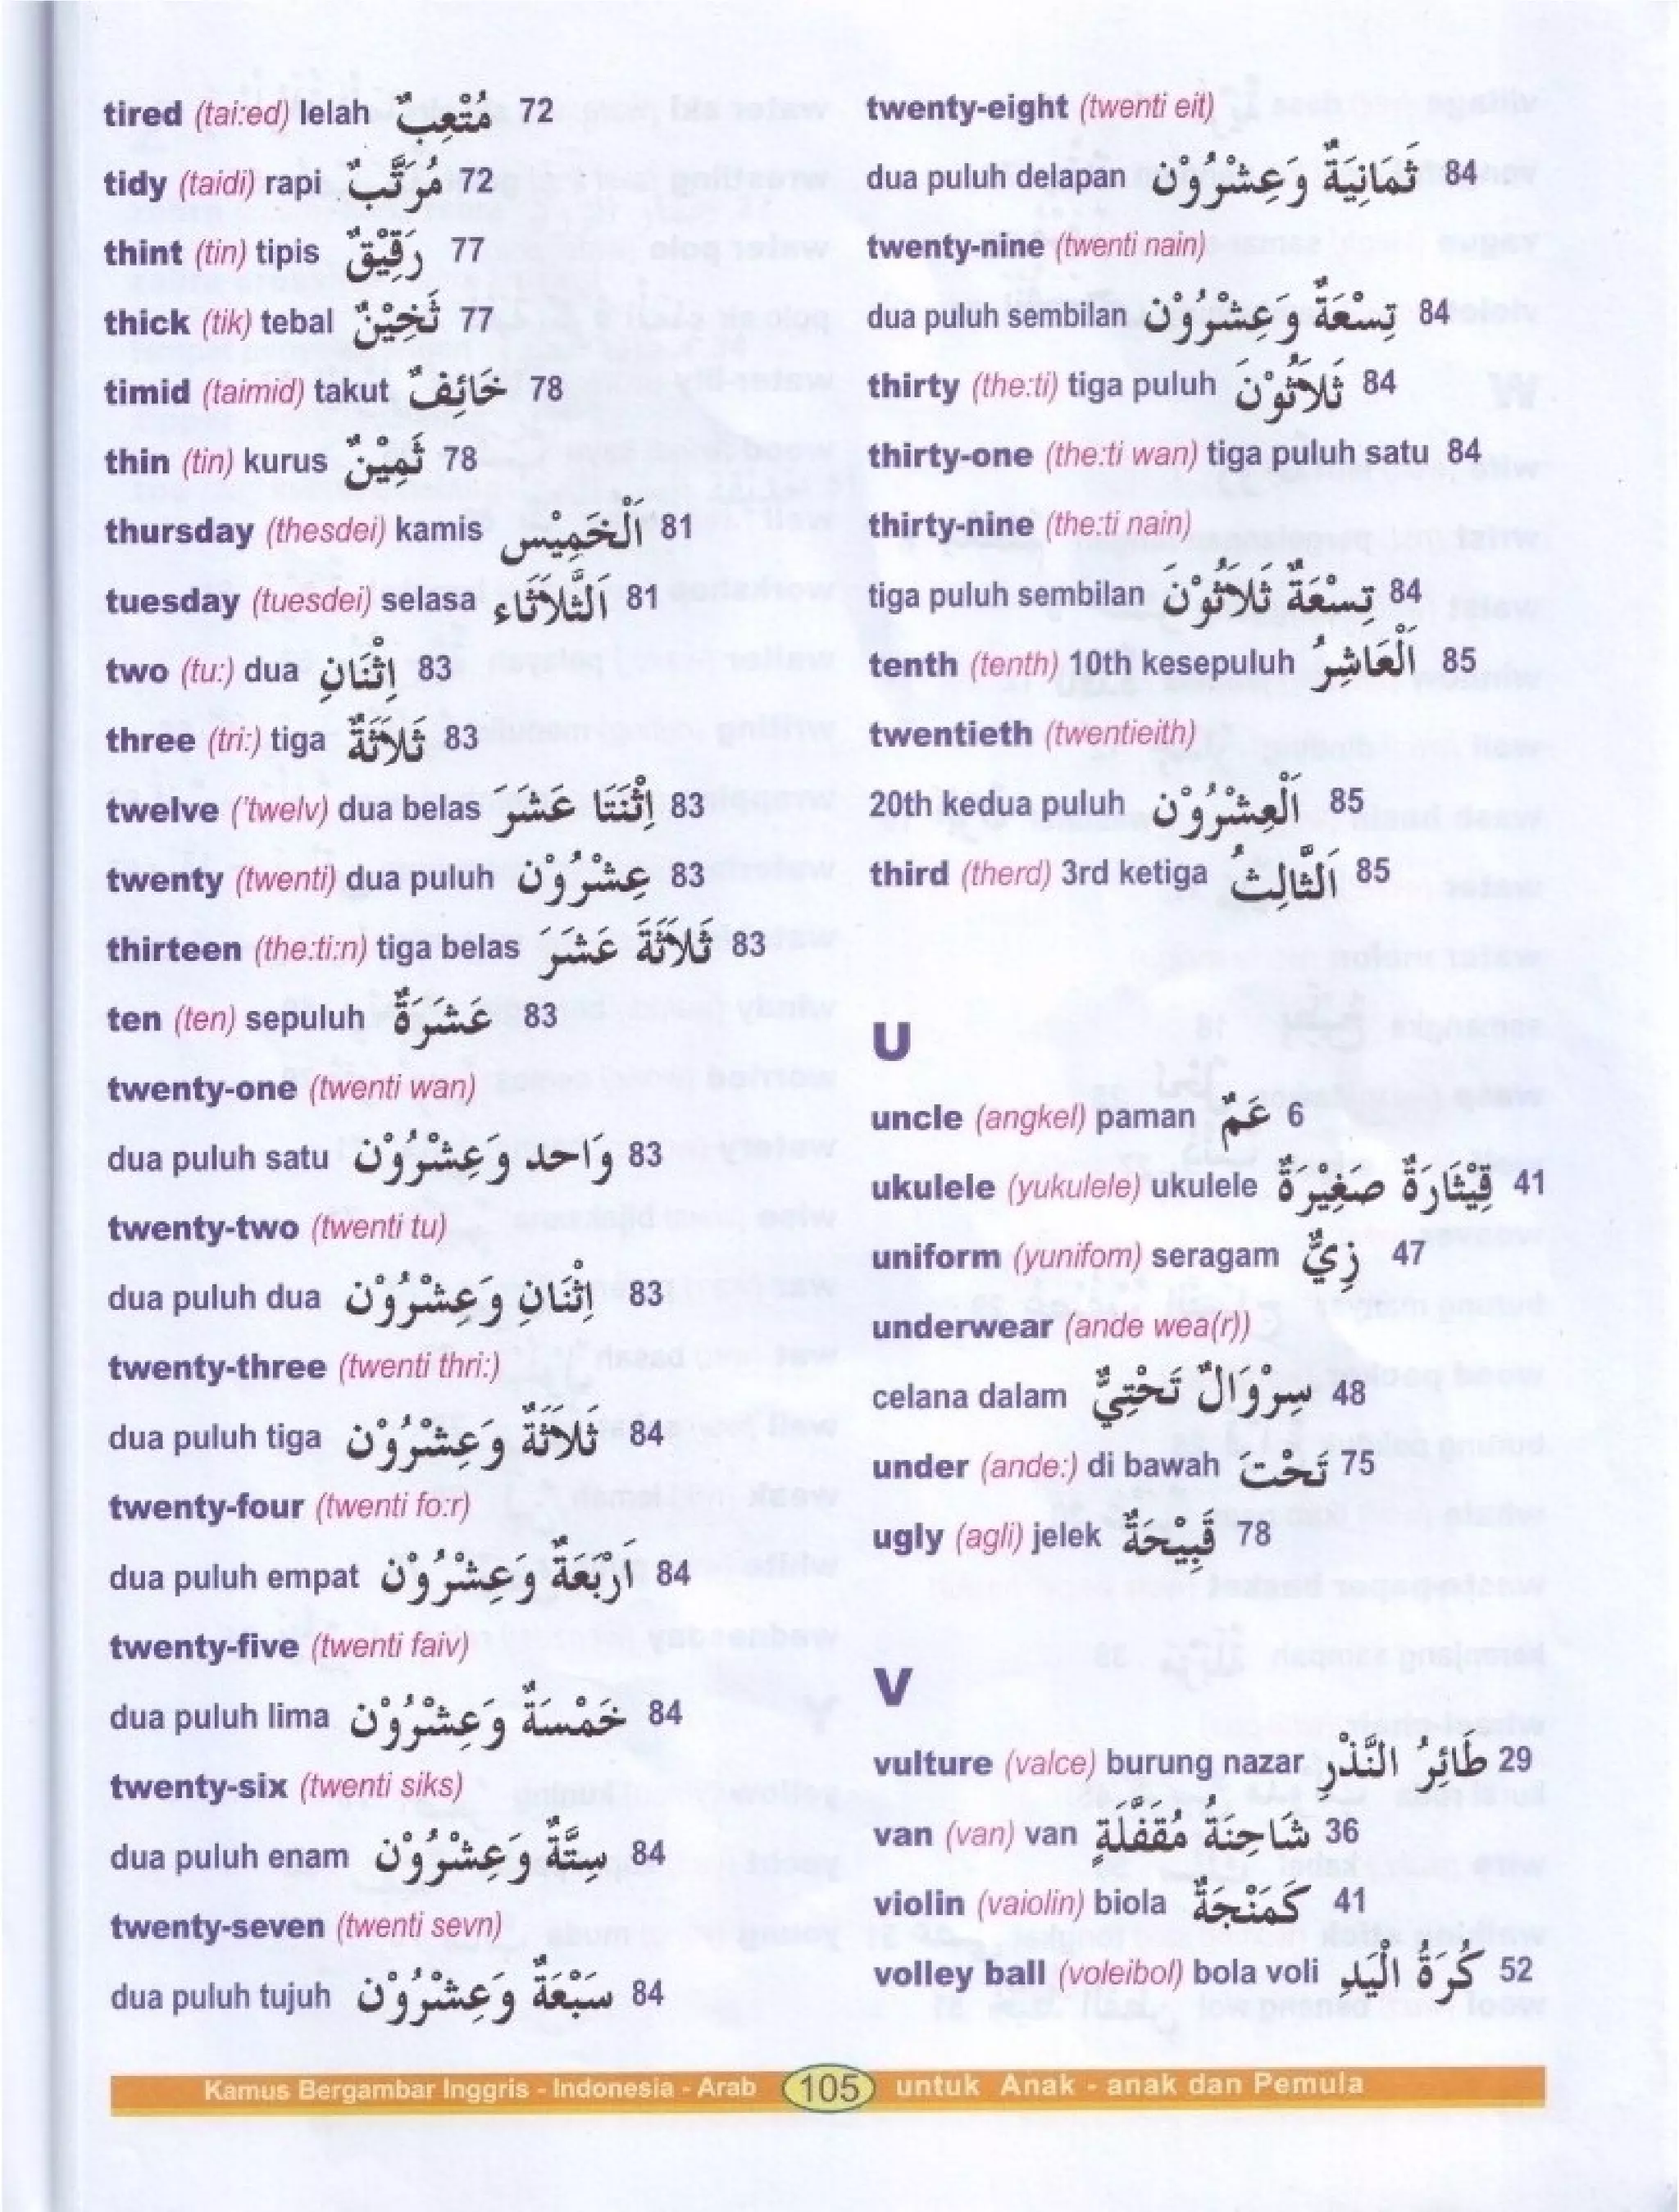 tired (tai:ed) lelah مُتْعِبٌ 72
tidy (taidi) rapi مُرَتَّبٌ 72
thint (tin) tipis رَقِيْقٌ 77
thick (tik) tebal ثَخِيْنٌ 77
timid (taimid) takut خَائِفٌ 78
thin (tin) kurus ثَمِيْنٌ 78
thursday (thesdei) kamis اَلْخَمِيْسِ 81
tuesday (tuesdei) selasa اَلثَّلاَثَاء 81
two (tu:) dua اِثْنَانِ 83
three (tri:) tiga ثَلاَثَةٌ 83
twelve ('twelv) dua belas اِثْنَتَا عَشَرَ 83
twenty (twenti) dua puluh عِشْرُوْنَ 83
thirteen (the:ti:n) tiga belas ثَلاَثَةَ عَشَرَ 83
ten (ten) sepuluh عَشَرَةٌ 83
twenty-one (twenti wan)
dua puluh satu وَاحد وَعِشْرُوْنَ 83
twenty-two (twenti tu)
dua puluh dua اِثْنَانِ وَعِشْرُوْنَ 83
twenty-three (twenti thri:)
dua puluh tiga ثَلاَثَةٌ وَعِشْرُوْنَ 84
twenty-four (twenti fo:r)
dua puluh empat اَرْبَعَةٌ وَعِشْرُوْنَ 84
twenty-five (twenti faiv)
dua puluh lima خَمْسَةٌ وَعِشْرُوْنَ 84
twenty-six (twenti siks)
dua puluh enam سِتَّةٌ وَعِشْرُوْنَ 84
twenty-seven (twenti sevn)
dua puluh tujuh سَبْعَةٌ وَعِشْرُوْنَ 84
twenty-eight (twenti eit)
dua puluh delapan ثَمَانِيَةٌ وَعِشْرُوْنَ 84
twenty-nine (twenti nain)
dua puluh sembilan تِسْعَةٌ وَعِشْرُوْنَ 84
thirty (the:ti) tiga puluh ثَلاَثُوْنَ 84
thirty-one (the:ti wan) tiga puluh satu 84
thirty-nine (the:ti nain)
tiga puluh sembilan تِسْعَةٌ ثَلاَثُوْنَ 84
tenth (tenth) 10th kesepuluh اَلْعَاشِرُ 85
twentieth (twentieith)
20th kedua puluh اَلْعِشْرُوْنَ 85
third (therd) 3rd ketiga اَلثَّالِثُ 85
U
uncle (angkel) paman عَمٌ 6
ukulele (yukulele) ukulele قِيْثَارَةٌ صَغِيْرَةٌ 41
uniform (yunifom) seragam زِيٌّ 47
underwear (ande wea(r))
celana dalam سِرْوَالٌ تَحْتِيٌّ 48
under (ande:) di bawah تَحْتَ 75
ugly (agli) jelek قَبِيْحَةٌ 78
V
vulture (valce) burung nazar طَائِرُ النَّذْرِ 29
van (van) van شَاحِنَةُ مُقَفَّلَةٍ 36
violin (vaiolin) biola كَمَنْجَةٌ 41
volley ball (voleibol) bola voli كُرَةُ الْيَدِ 52
Kamus Bergambar Inggris - Indonesia - Arab 105 untuk Anak - anak dan Pemula